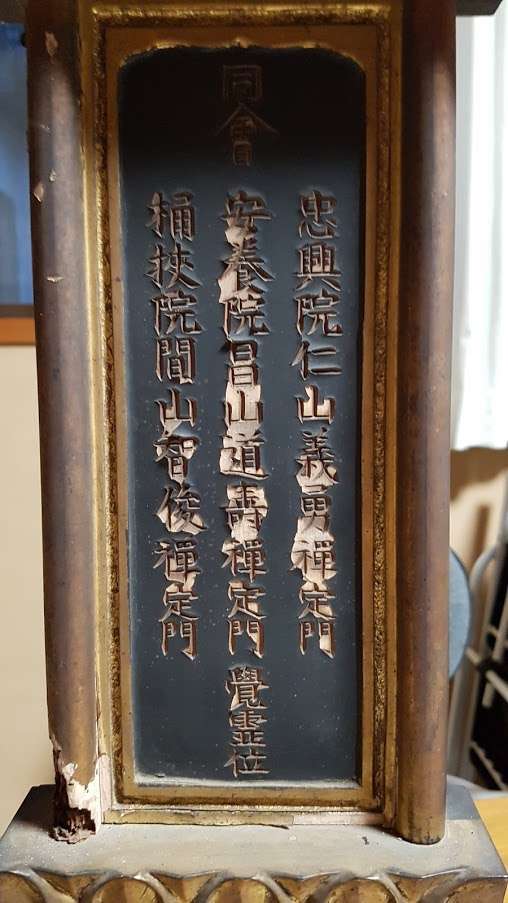 同會
忠興院仁山義勇禪定門
安養院昌山道壽禪定門 覺霊位
桶狹院間山智俊禪定門